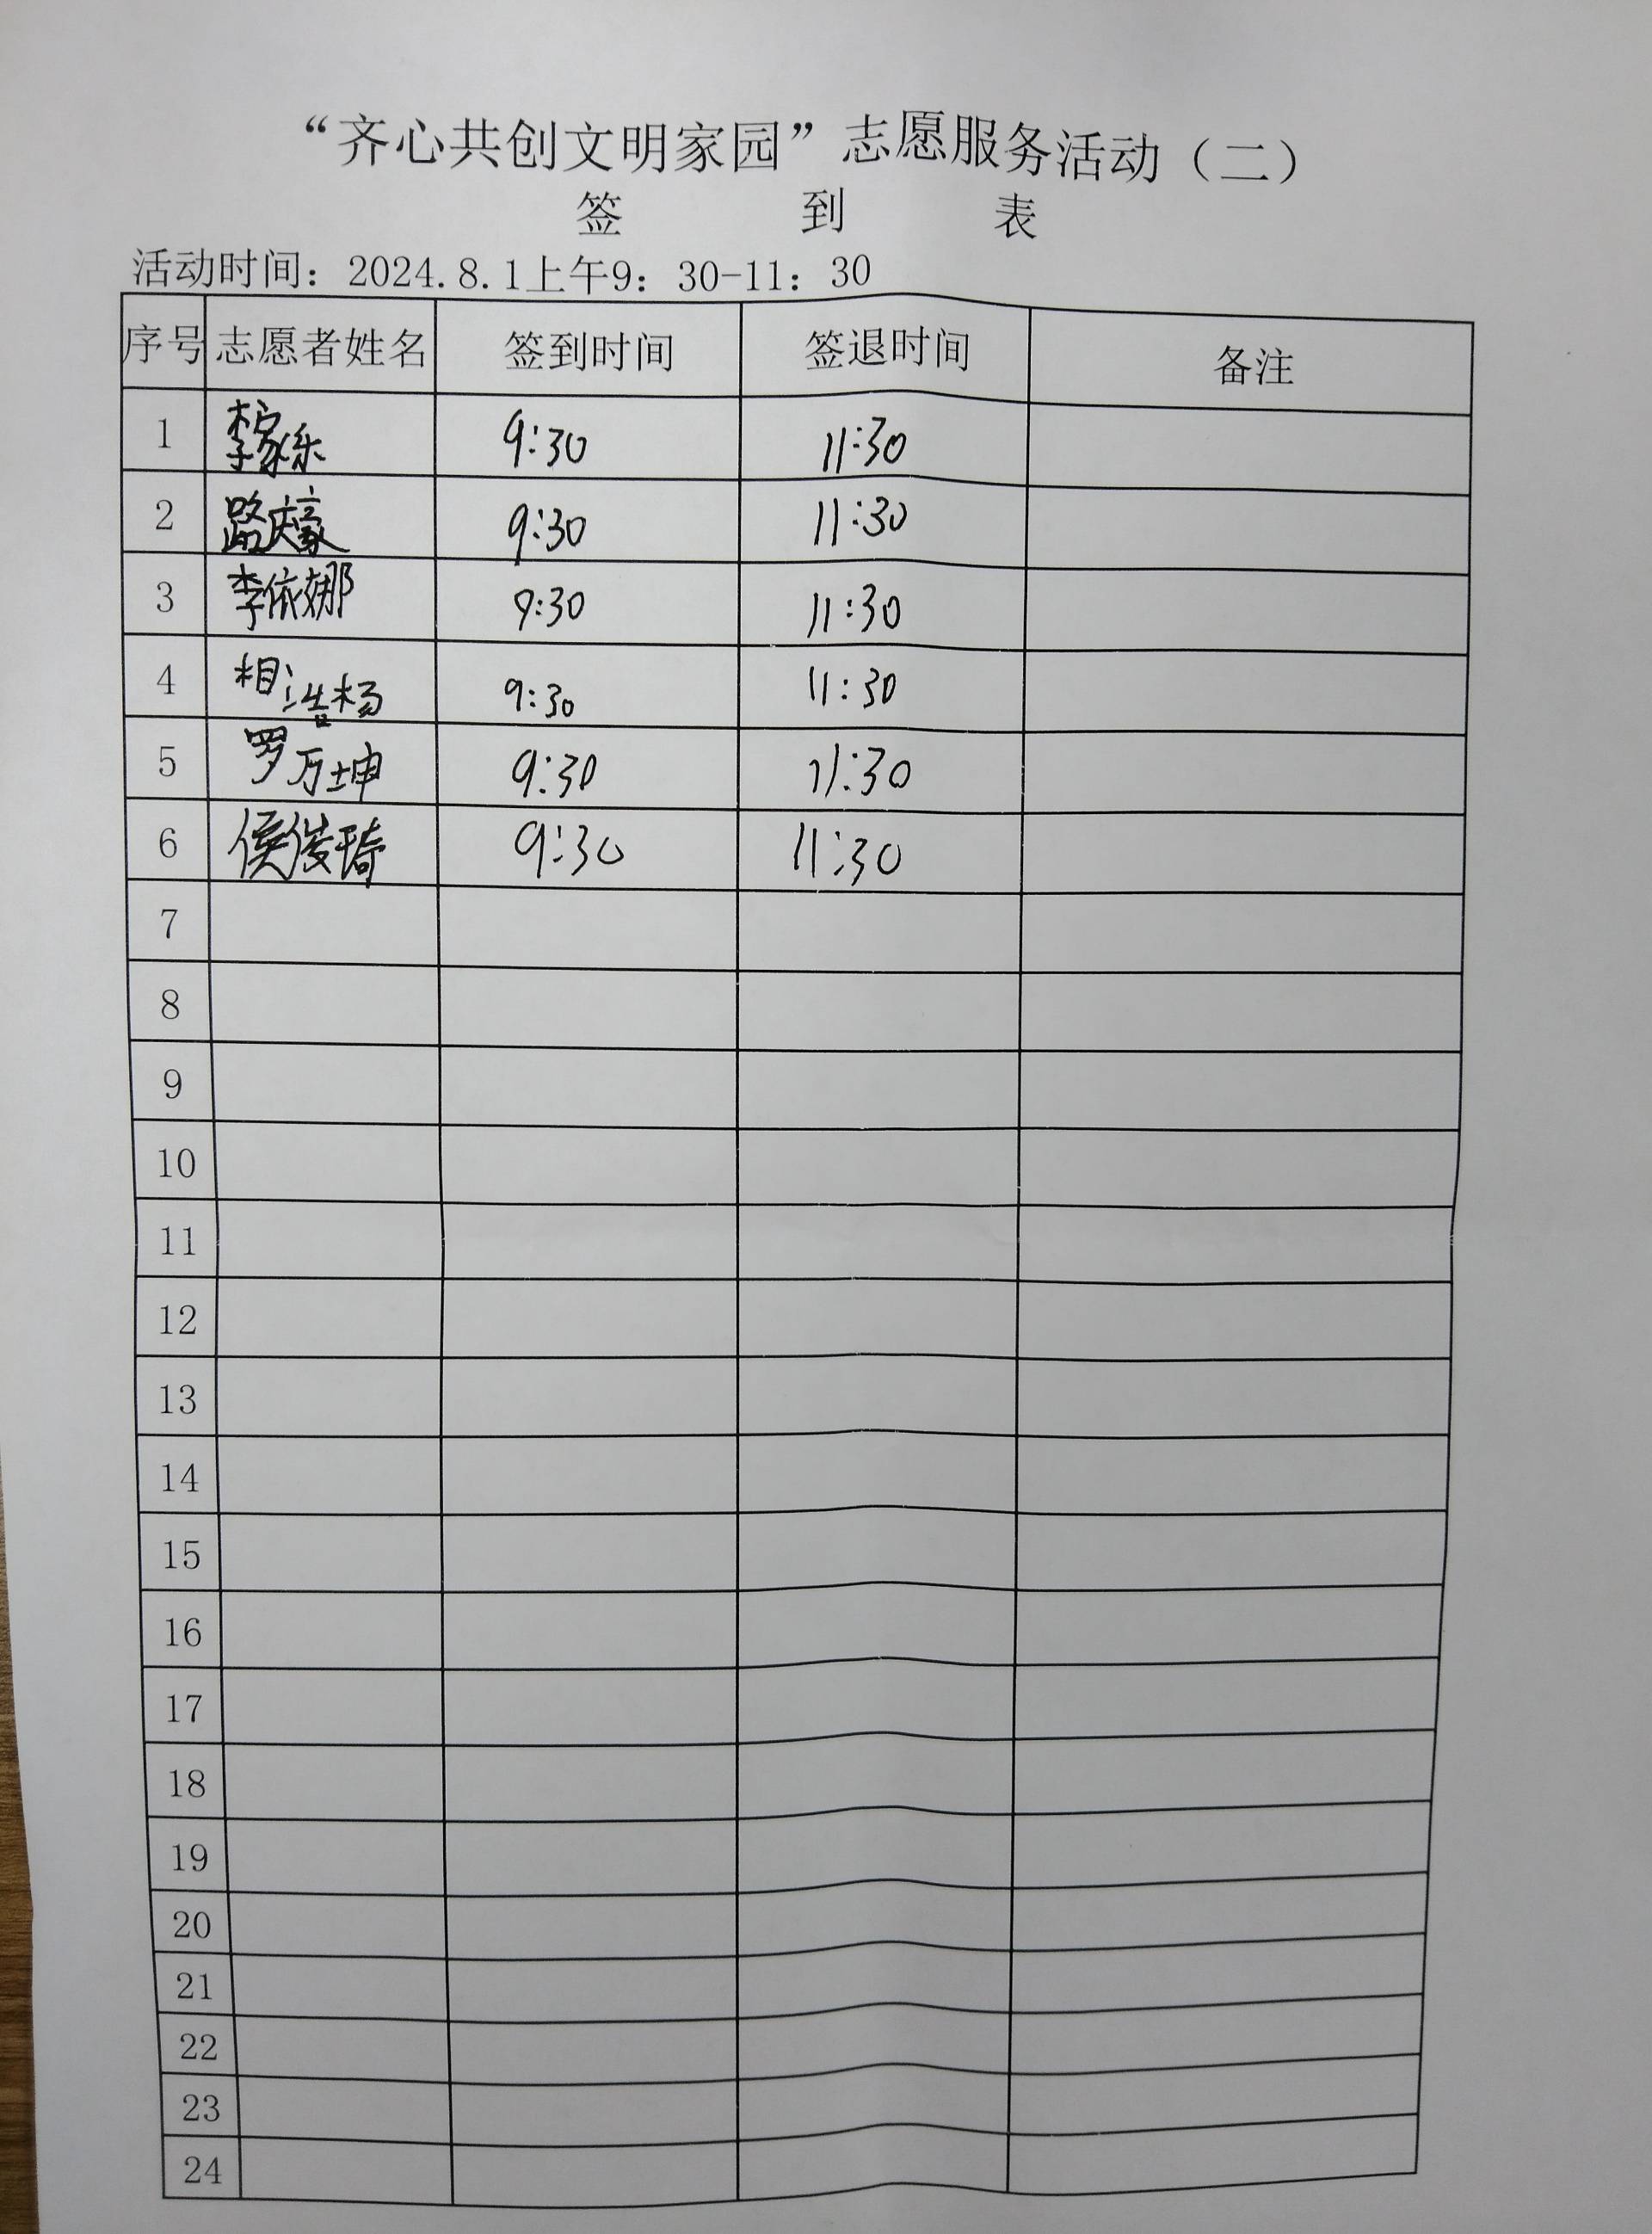 “齐心共创文明家园”志愿服务活动（二）
签 到 表
活动时间：2024.8.1上午9：30-11：30
序号 志愿者姓名 签到时间 签退时间 备注
1 李家乐 9:30 11:30
2 路庆豪 9:30 11:30
3 李依娜 9:30 11:30
4 相浩杨 9:30 11:30
5 罗万坤 9:30 11:30
6 侯俊琦 9:30 11:30
7
8
9
10
11
12
13
14
15
16
17
18
19
20
21
22
23
24